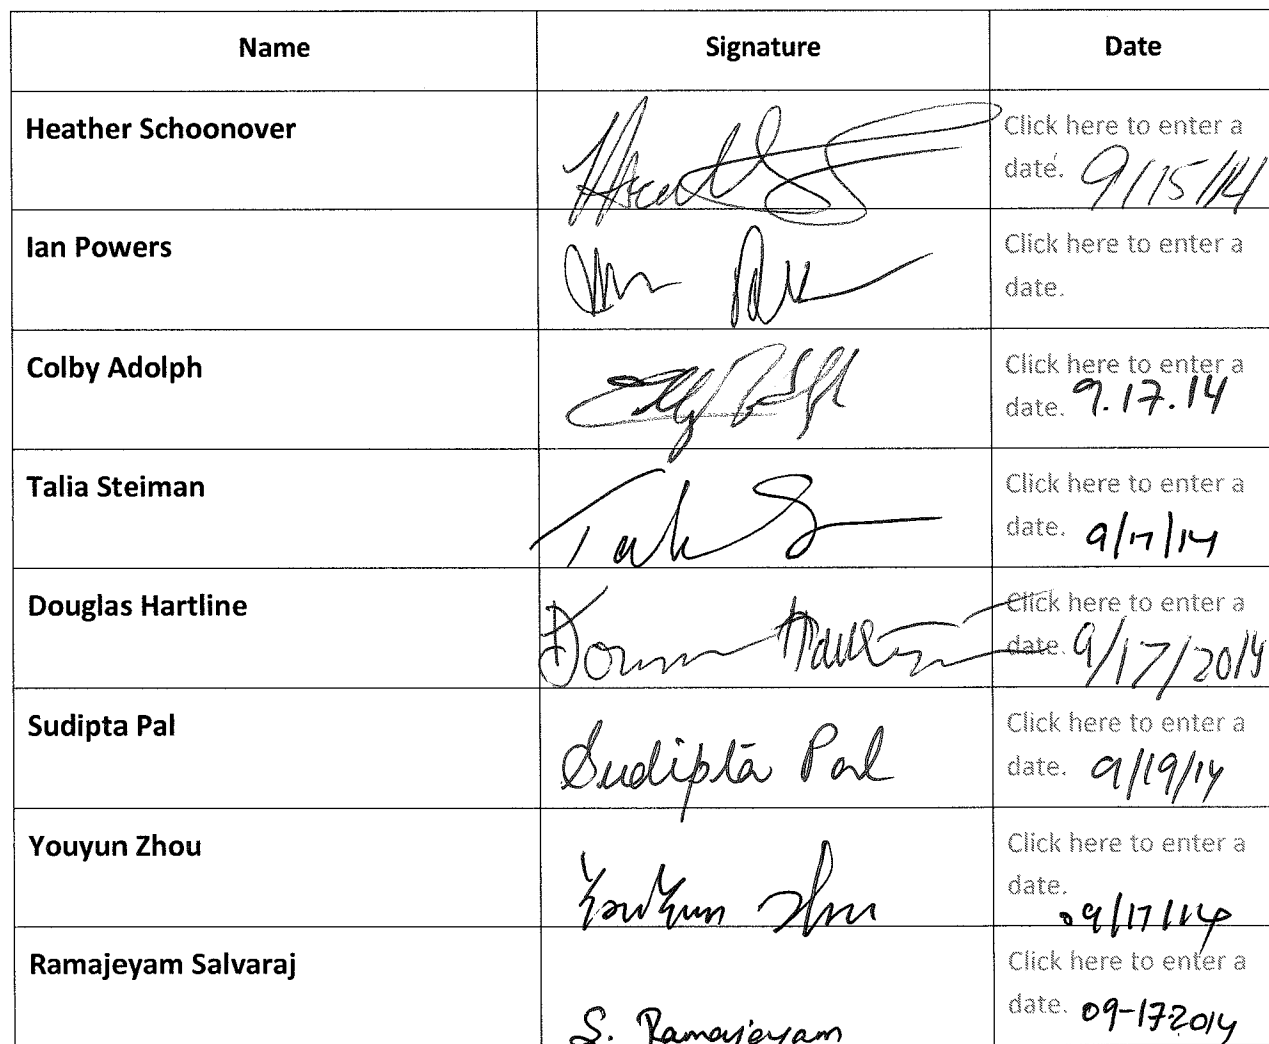 Name Signature Date
Heather Schoonover Click here to enter a
date. 9/15/14
Ian Powers Click here to enter a
date.
Colby Adolph Click here to enter a
date. 9.17.14
Talia Steiman Click here to enter a
date. 9/17/14
Douglas Hartline Click here to enter a
date. 9/17/2014
Sudipta Pal Sudipta Pal Click here to enter a
date. 9/19/14
Youyun Zhou Youyun Zhou Click here to enter a
date. 09/17/14
Ramajeyam Salvaraj S. Ramajeyam Click here to enter a
date. 09-17-2014